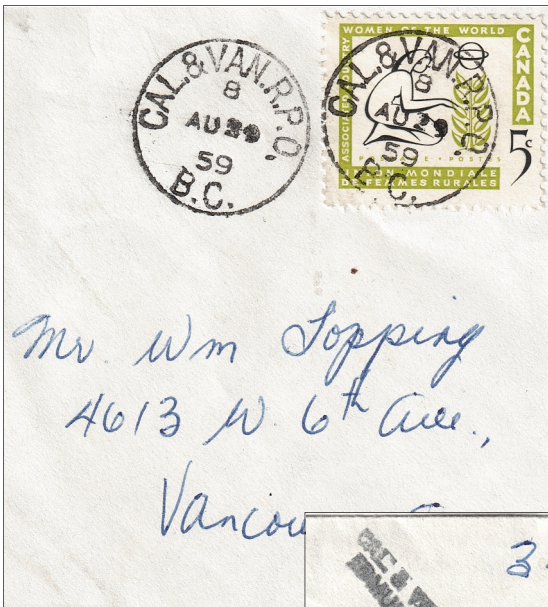 CAL.&VAN.R.P.O.
8
AU 29
59
B.C.
WOMEN OF THE WORLD
ASSOCIATED COUNTRY
CANADA
5c
POSTAGE • POSTES
UNION MONDIALE
DES FEMMES RURALES
CAL.&VAN.R.P.O.
8
AU 29
59
B.C.
Mr Wm Topping
4613 W. 6th Ave.,
CAL &
3